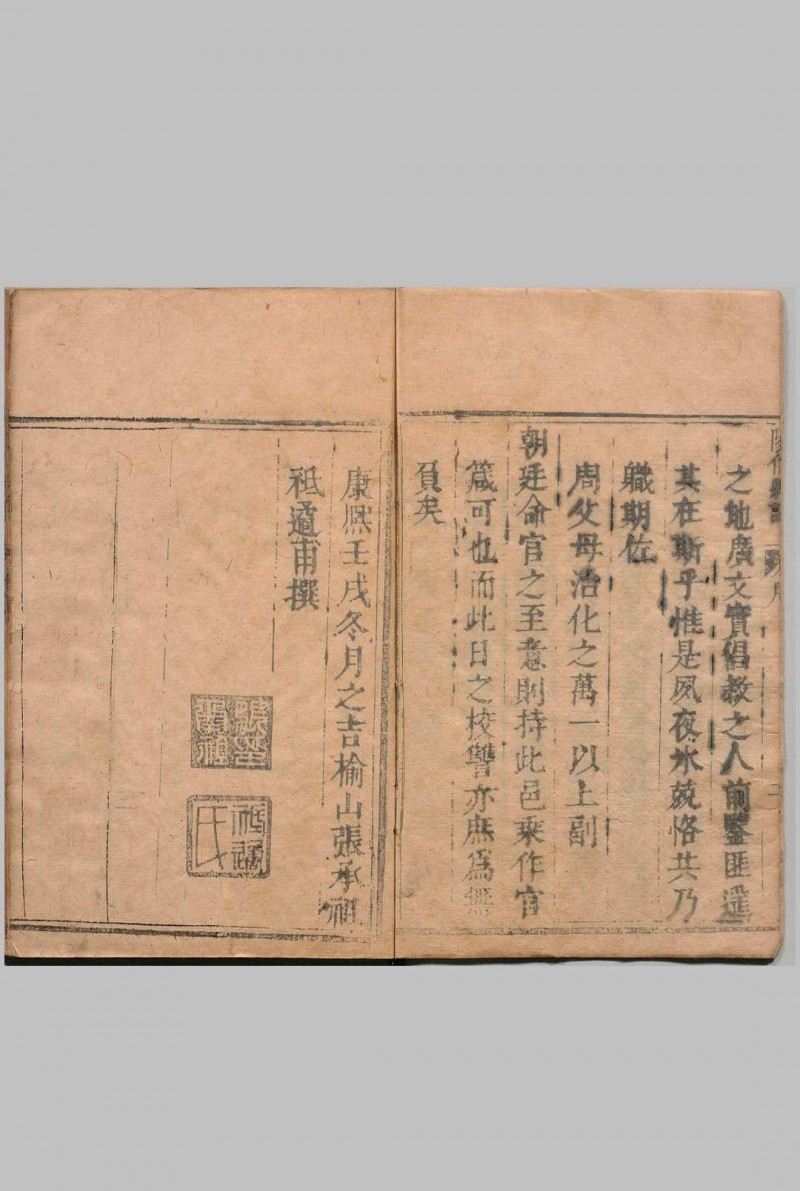 之地廣文實倡教之人前鑒匪遥
其在斯乎惟是夙夜氷兢恪共乃
職期佐
周父母治化之萬一以上副
朝廷命官之至意則持此邑乘作官
箴可也而此日之校讐亦庶爲無
負矣
康熙壬戌冬月之吉榆山張承祖
祗遹甫撰